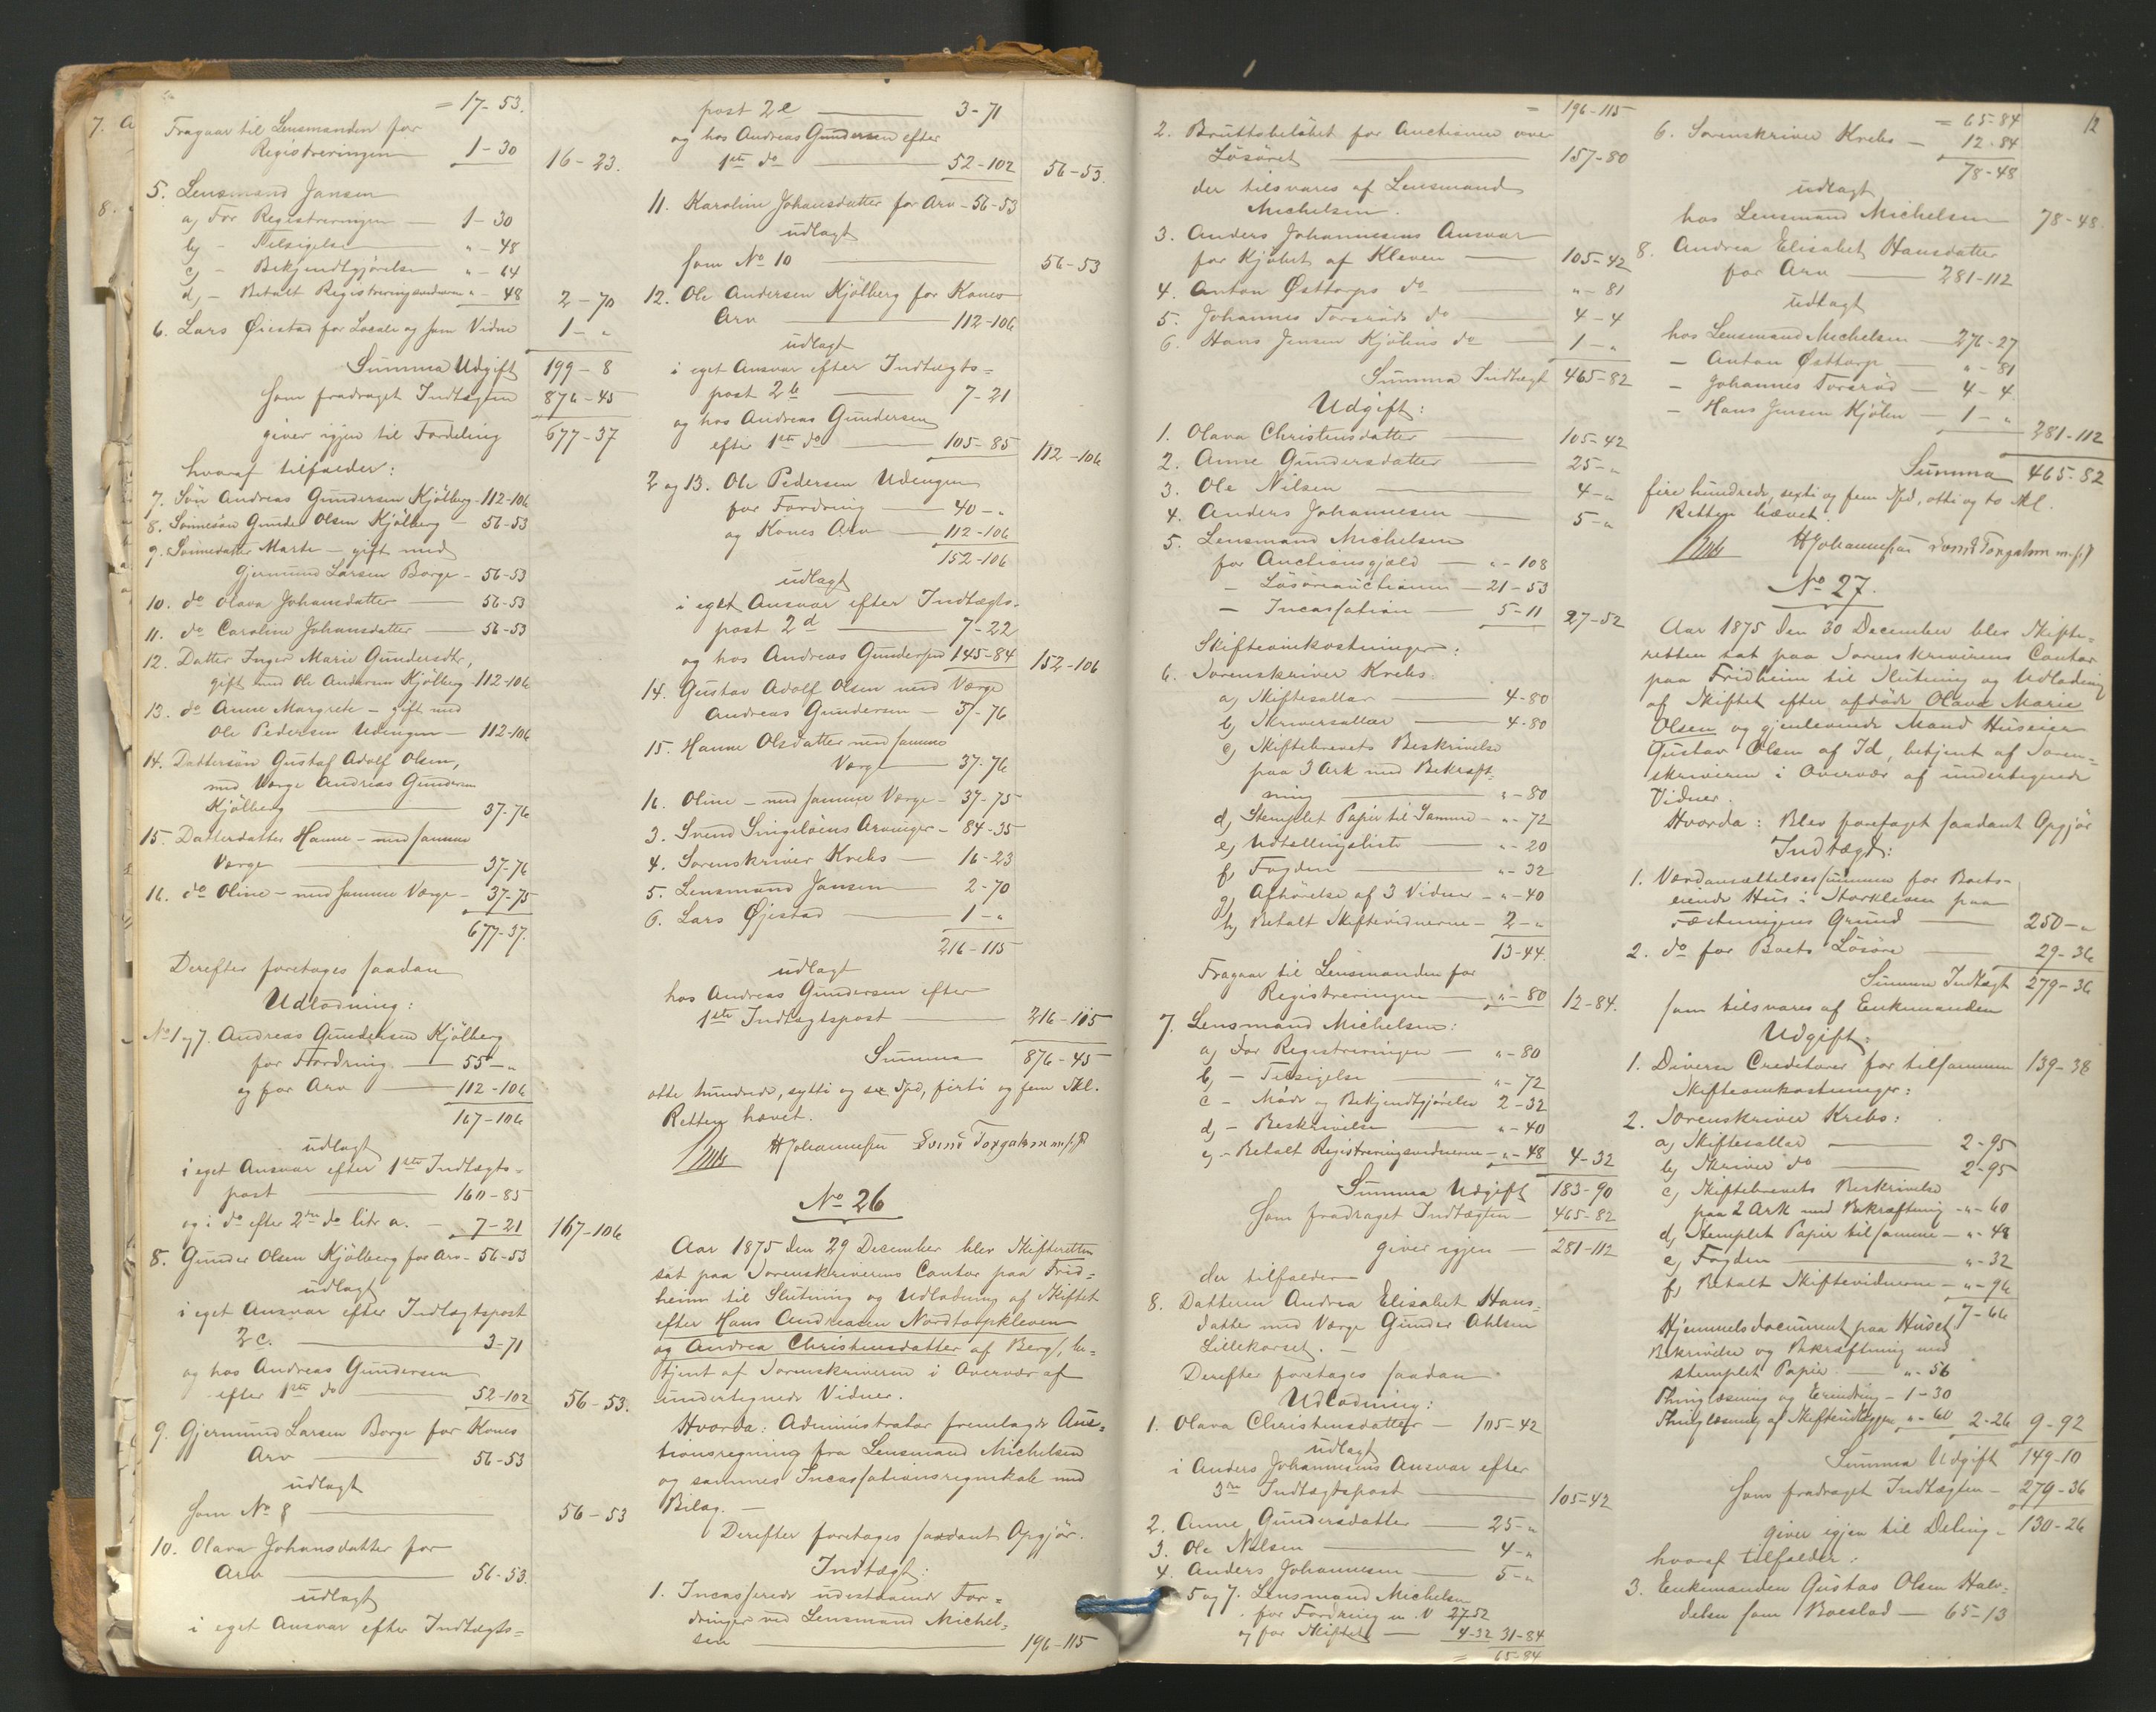 = 17-53.
Fragaar til Lensmanden for
Registreringen 1-30
16-23.
5. Lensmand Jansen
a, For Registreringen — 1-30
b, - Tilsigelse — „-48
c, - Bekjendtgjörelse „-64
d, - Betalt Registreringsvidnerne „-48
2-70
6. Lars Øiestad for Locale og som Vidne 1-„
Summa Udgift 199-8
som fradraget Indtægten 876-45
giver igjen til Fordeling 677-37
hvoraf tilfalder:
7. Sön Andreas Gundersen Kjölberg - 112-106
8. Sönnesön Gunder Olsen Kjölberg - 56-53
9. Sönnedatter Marte - gift med
Gjermund Larsen Borge - 56-53
10. do Olava Johansdatter — 56-53
11. do Caroline Johansdatter — 56-53
12. Datter Inger Marie Gundersdtr,
gift med Ole Andersen Kjölberg - 112-106
13. do Anne Margrete - gift med
Ole Pedersen Udengen — 112-106
14. Dattersön Gustaf Adolf Olsen,
med Værge Andreas Gundersen
Kjölberg — 37-76
15. Datterdatter Hanne - med samme
Værge — 37-76
16. do Oline - med samme Værge - 37-75
677-37.
Derefter foretages saadan
Udlodning:
No 1 og 7. Andreas Gundersen Kjölberg
for Fordring — 55-„
og for Arv — 112-106
167-106
udlagt
i eget Ansvar efter 1ste Indtægts-
post — 160-85
og i do efter 2den do litr a. - 7-21
167-106
8. Gunder Olsen Kjölberg for Arv - 56-53
udlagt
i eget Ansvar efter Indtægtspost
2 c. — 3-71
og hos Andreas Gundersen
efter 1ste do — 52-102
56-53.
9. Gjermund Larsen Borge for Kones
Arv — 56-53
udlagt
som No 8 — 56-53
10. Olava Johansdatter for
Arv — 56-53.
udlagt
i eget Ansvar efter Indtægts=
post 2 e — 3-71
og hos Andreas Gundersen efter
1ste do — 52-102
56-53.
11. Karoline Johansdatter for Arv - 56-53
udlagt
som No 10 — 56-53
12. Ole Andersen Kjölberg for Kones
Arv — 112-106
udlagt
i eget Ansvar efter Indtægts=
post 2 b — 7-21
og hos Andreas Gundersen
efter 1ste do — 105-85
112-106
2 og 13. Ole Pedersen Udengen
for Fordring — 40-„
og Kones Arv — 112-106
152-106
udlagt
i eget Ansvar efter Indtægts-
post 2 d — 7-22
og hos Andreas Gundersen 145-84
152-106
14. Gustav Adolf Olsen med Værge
Andreas Gundersen — 37-76
15. Hanne Olsdatter med samme
Værge — 37-76
16. Oline - med samme Værge - 37-75
3. Svend Singelöens Arvinger - 84-35
4. Sorenskriver Krebs — 16-23
5. Lensmand Jansen — 2-70
6. Lars Øjestad — 1-„
216-115
udlagt
hos Andreas Gundersen efter
1ste Indtægtspost — 216-115
Summa 876-45
otte hundrede, sytti og sex Spd, firti og fem Skl.
Retten hævet.
Krebs HJohannessen Svend Torgalsen m.f.P
No 26
Aar 1875 den 29 December blev Skifteretten
sat paa Sorenskriverens Contor paa Frid=
heim til Slutning og Udlodning af Skiftet
efter Hans Andreasen Nordtorpkleven
og Andrea Christensdatter af Berg, be=
tjent af Sorenskriveren i Overvær af
undertegnede Vidner.
Hvorda: Administrator fremlagde Auc=
tionsregning fra Lensmand Michelsen
og sammes Incassationsregnskab med
Bilag. —
Derefter foretages saadant Opgjör.
Indtægt:
1. Incasserede udestaaende For=
dringer ved Lensmand Michel=
sen — 196-115
= 196-115
2. Bruttobelöbet for Auctionen over
Lösöret — 157-80
der tilsvares af Lensmand
Michelsen.
3. Anders Johannesens Ansvar
for Kjöbet af Kleven — 105-42
4. Anton Østtorps do — „-81
5. Johannes Torsröds do — 4-4
6. Hans Jensen Kjölens do — 1-„
Summa Indtægt 465-82
Udgift:
1. Olava Christensdatter — 105-42
2. Anne Gundersdatter — 25-„
3. Ole Nilsen — 4-„
4. Anders Johannesen — 5-„
5. Lensmand Michelsen
for Auctionsgjæld — „-108
- Lösöreauctionen — 21-53
- Incassation — 5-11
27-52
Skifteomkostninger:
6. Sorenskriver Krebs:
a, Skiftesallar — 4-80
b, Skriversallar — 4-80
c, Skiftebrevets Beskrivelse
paa 3 Ark med Bekræft=
ning — „-80
d, Stemplet Papir til Samme - „-72
e, Udtællingsliste — „-20
f, Fogden — „-32
g, Afhörelse af 3 Vidner - „-40
h, Betalt Skiftevidnerne - 2-„
13-44.
Fragaar til Lensmanden for
Registreringen — „-80
12-84.
7. Lensmand Michelsen:
a, For Registreringen — „-80
b, - Tilsigelse — „-72
c - Möde og Bekjendtgjörelse 2-32
d, - Beskrivelse — „-40
e, - Betalt Registreringsvidnerne - „-48
4-32
Summa Udgift 183-90
Som fradraget Indtægten - 465-82
giver igjen — 281-112
der tilfalder
8. Datteren Andrea Elisabet Hans=
datter med Værge Gunder Ahlsen
Lillekorset. —
Derefter foretages saadan
Udlodning:
1. Olava Christensdatter — 105-42
udlagt
i Anders Johannesens Ansvar efter
3die Indtægtspost — 105-42
2. Anne Gundersdatter — 25-„
3. Ole Nilsen — 4-„
4. Anders Johannesen — 5-„
5 og 7. Lensmand Michelsen
for Fordring 27-52
og for Skiftet — 4-32 31-84
= 65-84
12
= 65-84
6. Sorenskriver Krebs — 12-84
78-48
udlagt
hos Lensmand Michelsen 78-48.
8. Andrea Elisabet Hansdatter
for Arv — 281-112
udlagt
hos Lensmand Michelsen — 276-27
- Anton Østtorp — „-81
- Johannes Torsröd — 4-4
- Hans Jensen Kjölen — 1-„
281-112
Summa 465-82
fire hundrede, sexti og fem Spd, otti og to Skl.
Retten hævet.
Krebs HJohannessen Svend Torgalsen m.f.P
No 27.
Aar 1875 den 30 December blev Skifte=
retten sat paa Sorenskriverens Contor
paa Fridheim til Slutning og Udlodning
af Skiftet efter afdöde Olava Marie
Olsen og gjenlevende Mand Huseier
Gustav Olsen af Id, betjent af Soren=
skriveren i Overvær af undertegnede
Vidner.
Hvorda: Blev foretaget saadant Opgjör
Indtægt:
1. Værdiansættelsessummen for Boets-
eiende Hus i paa
Fæstningens Grund — 250-„
2. do for Boets Lösöre — 29-36
Summa Indtægt 279-36
som tilsvares af Enkemanden
Udgift:
1. Diverse Creditorer for tilsammen 139-38
Skifteomkostninger:
2. Sorenskriver Krebs:
a, Skiftesallar — 2-95
b, Skriver do — 2-95
c, Skiftebrevets Beskrivelse
paa 2 Ark med Bekræftning - „-60
d, Stemplet Papir til samme - „-48
e, Fogden — „-32
f, Betalt Skiftevidnerne - „-96
7-66
Hjemmelsdocument paa Huset
Bekrivelse og Bekræftning med
stemplet Papir — „-56
Thinglæsning og Erindring - 1-30
Thinglæsning af Skifteudlægget „-60 2-26 9-92
Summa Udgift 149-10
som fradraget Indtægten - 279-36
giver igjen til Deling - 130-26
hvoraf tilfalder:
3. Enkemanden Gustav Olsen Halv=
delen som Boeslod — 65-13